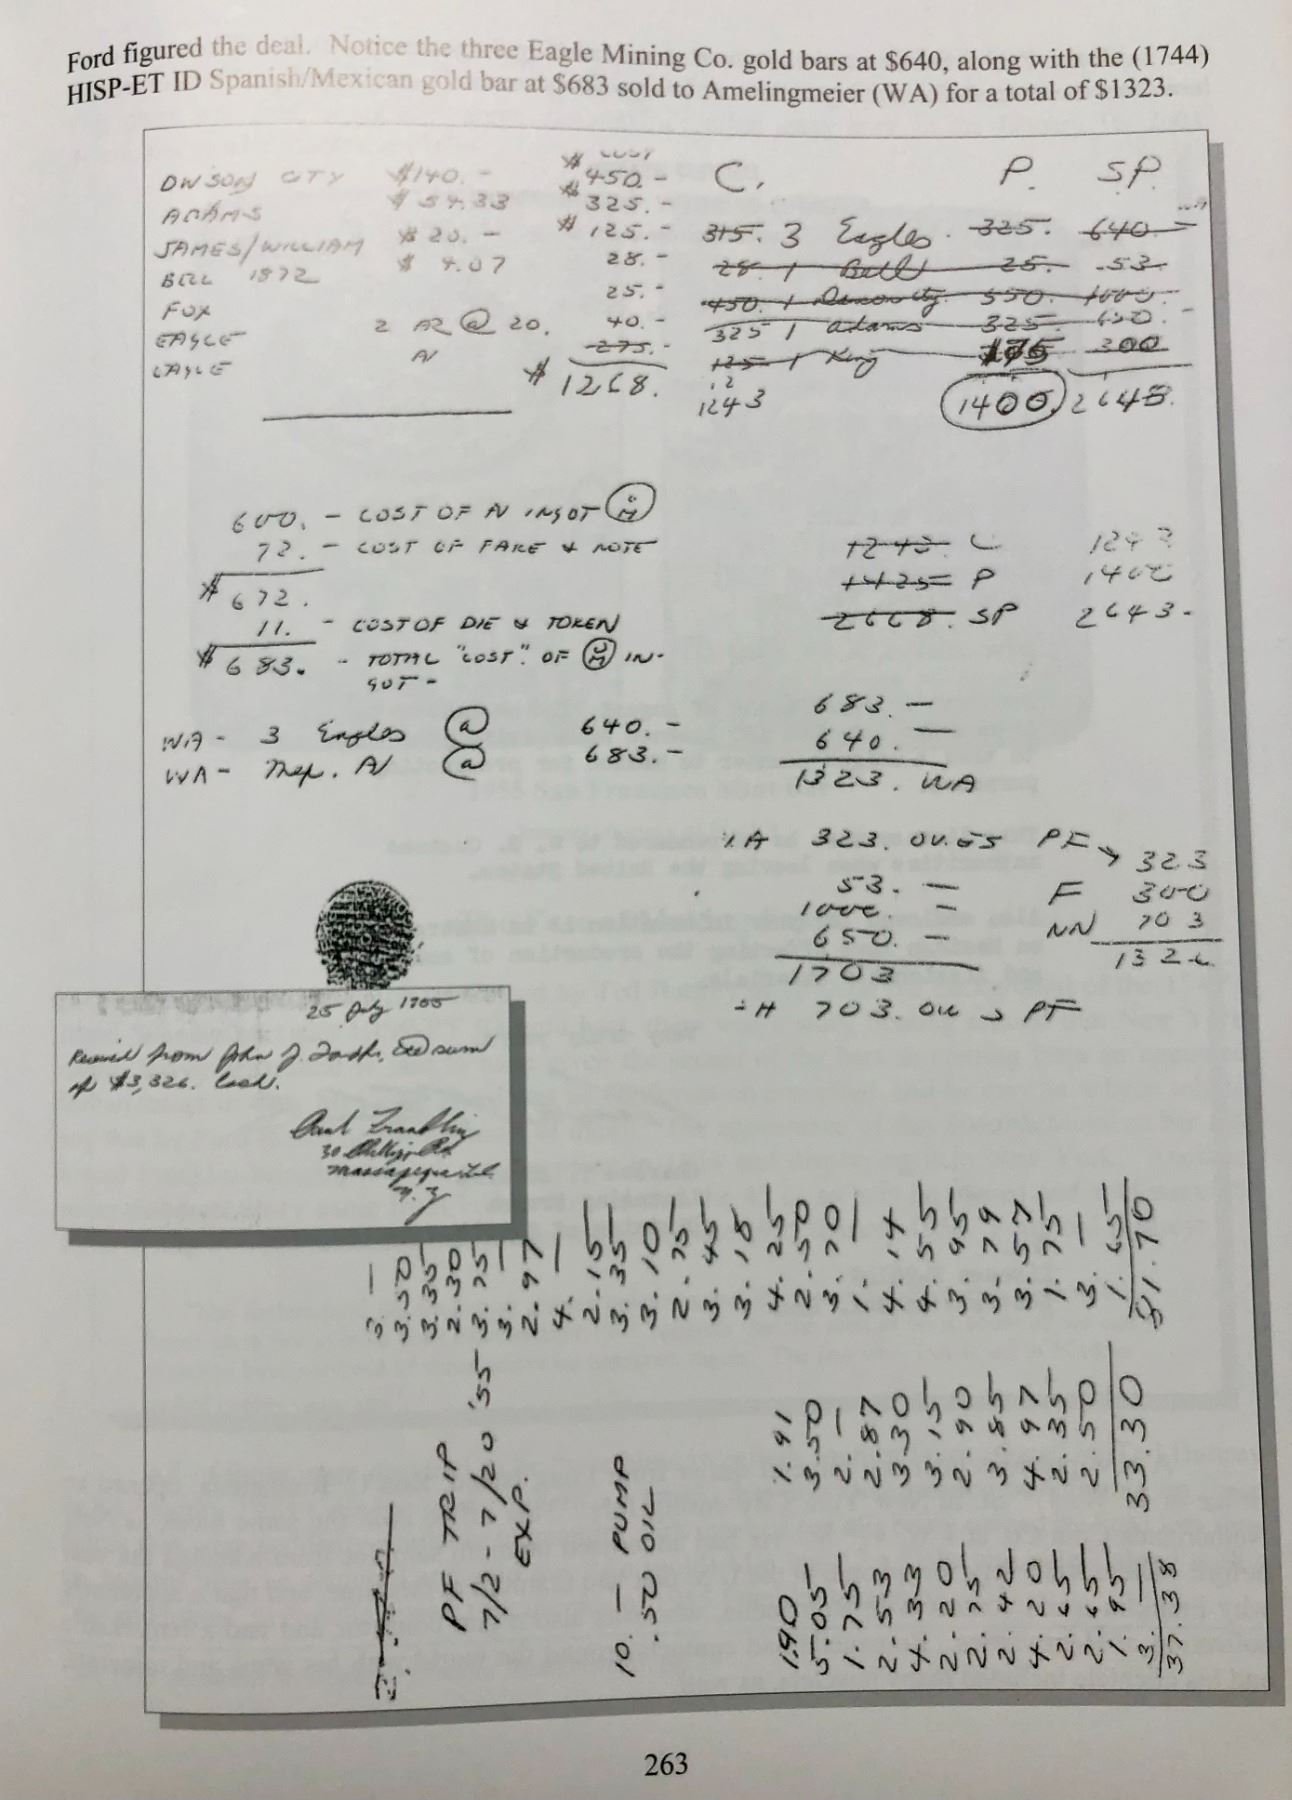 Ford figured the deal. Notice the three Eagle Mining Co. gold bars at $640, along with the (1744)
HISP-ET ID Spanish/Mexican gold bar at $683 sold to Amelingmeier (WA) for a total of $1323.
COST
DWSON CITY $140.- $450.-
ADAMS $54.33 $325.-
JAMES/WILLIAM $20.- $125.-
BELL 1872 $4.07 28.-
FOX 25.-
EAGLE 2 AR @ 20. 40.-
EAGLE 275.-
$1268.
C. P. SP.
315. 3 Eagles. 325. 640.-
28. 1 Bell 25. .53.
450. 1 550. 1000.
325 1 adams 325. 650.
125 1 King 175 300
12
1243 1400. 2643.
600. - COST OF INGOT
72. - COST OF FAKE & NOTE
$672.
11. - COST OF DIE & TOKEN
$683. - TOTAL "COST" OF IN-
GOT -
1243. C 1243
1425 P 1400
2668. SP 2643-
WA - 3 Eagles @ 640.-
WA - Mex. @ 683.-
683.-
640.-
1323. WA
323. OWES PF 323
53.- F 300
1000.- NN 703
650.- 1326
1703
703. PF
25 July 1955
Received from John J. Ford Jr. sum
of $3,326. Cash.
Paul Franklin
30 Phillips Rd.
Massapequa
N.Y.
PF TRIP
7/2 - 7/20 '55
EXP.
10. - PUMP
.50 OIL
3. -
3.50
3.35
2.30
3.75
3. -
2.97
4. -
2.15
3.35
3.10
2.75
3.45
3.18
4.25
2.50
3.70
1. -
4.14
4.55
3.95
3.79
3.57
1.75
3. -
1.65
91.70
1.91
3.50
2. -
2.87
3.30
3.15
2.90
3.85
4.97
2.35
2.50
33.30
1.90
5.05
1.75
2.53
4.33
2.20
2.75
2.42
4.20
2.65
2.65
1.95
3. -
37.38
263